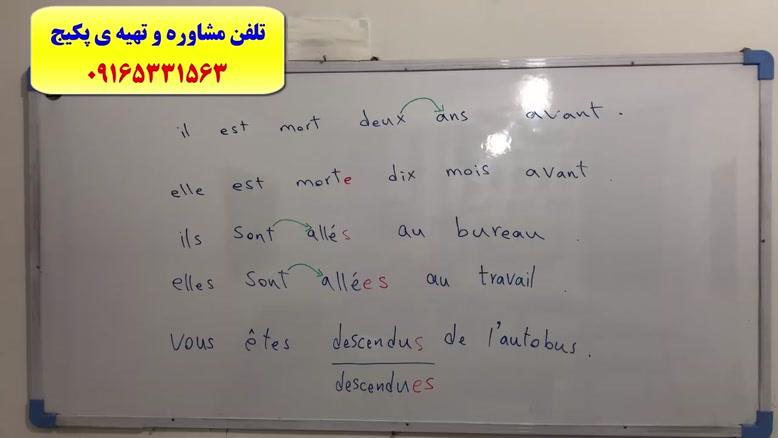 تلفن مشاوره و تهیه ی پکیج
۰۹۱۶۵۳۳۱۵۶۳
il est mort deux ans avant.
elle est morte dix mois avant.
ils sont allés au bureau.
elles sont allées au travail.
vous êtes descendus de l'autobus.
descendues